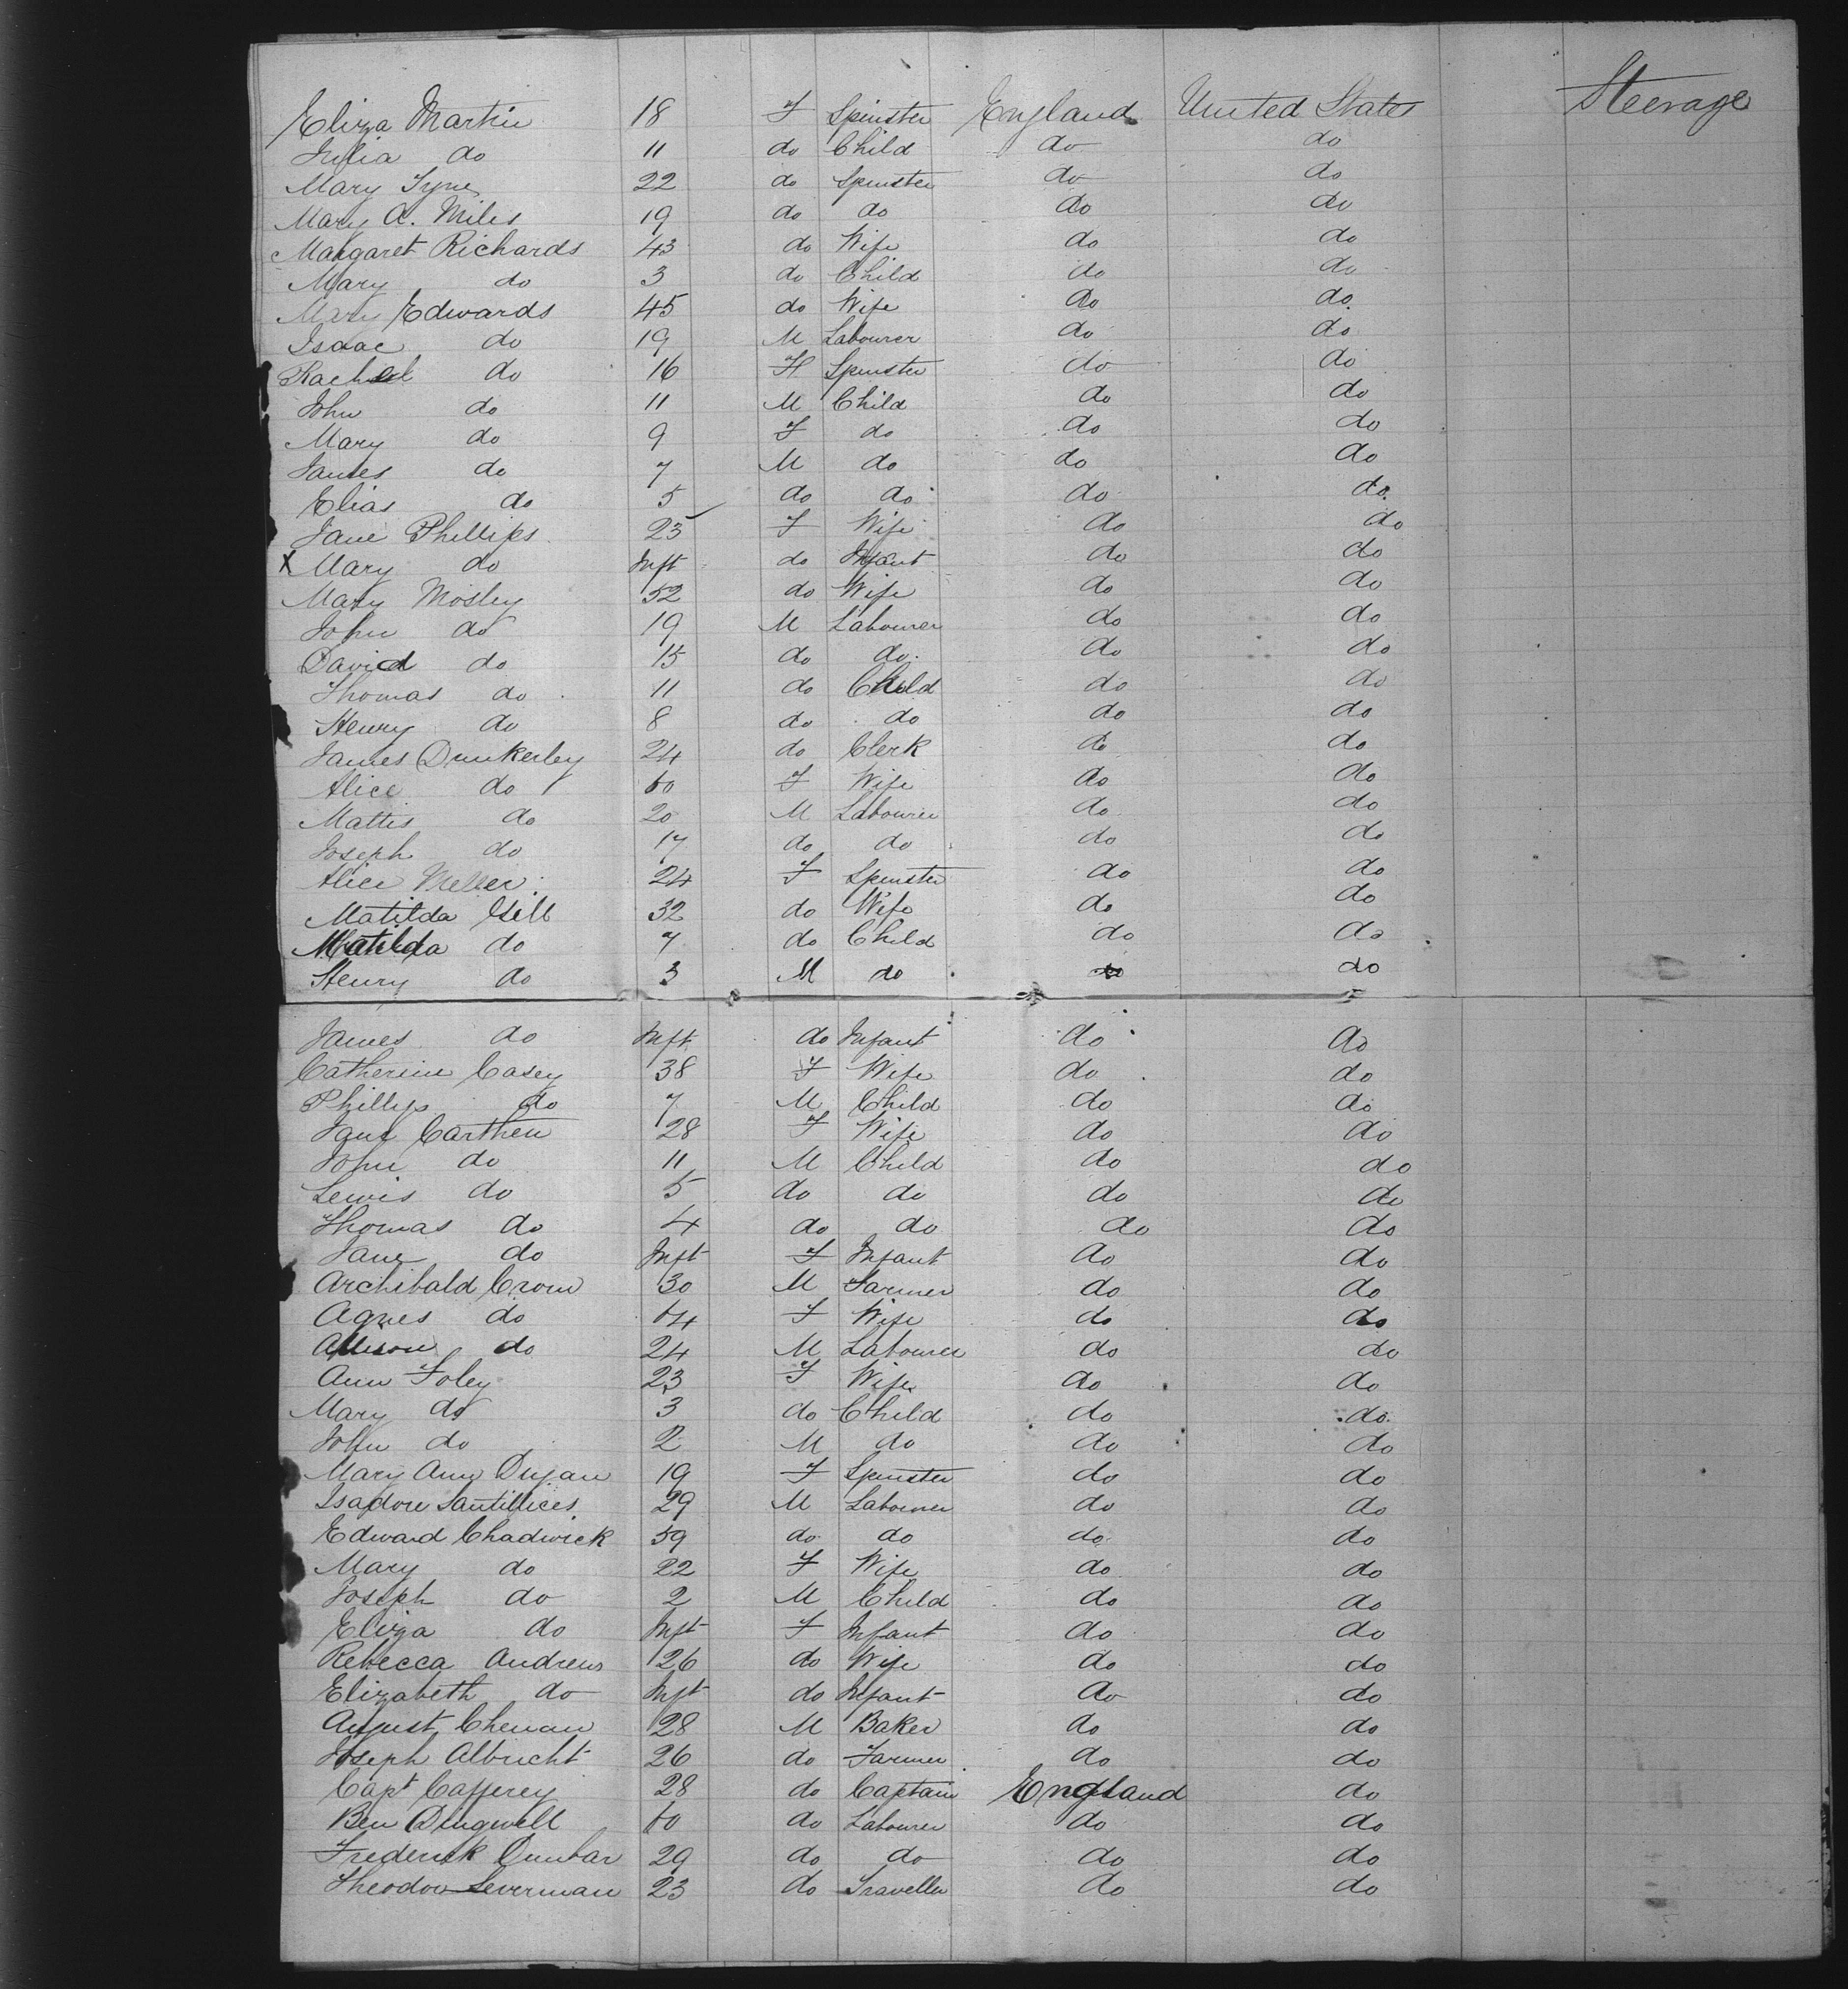 Eliza Martin 18 F Spinster England United States Steerage
Julia do 11 do Child do do
Mary Tyne 22 do Spinster do do
Mary A. Miles 19 do do do do
Margaret Richards 43 do Wife do do
Mary do 3 do Child do do
Mary Edwards 45 do Wife do do
Isaac do 19 M Labourer do do
Rachel do 16 F Spinster do do
John do 11 M Child do do
Mary do 9 F do do do
James do 7 M do do do
Elias do 5 do do do do
Jane Phillips 25 F Wife do do
X Mary do Inft do Infant do do
Mary Mosley 52 do Wife do do
John do 19 M Labourer do do
David do 15 do do do do
Thomas do 11 do Child do do
Henry do 8 do do do do
James Dunkerley 24 do Clerk do do
Alice do 60 F Wife do do
Mattis do 20 M Labourer do do
Joseph do 17 do do do do
Alice Meller 24 F Spinster do do
Matilda Gill 32 do Wife do do
Matilda do 7 do Child do do
Henry do 3 M do do do
James do Inft do Infant do do
Catherine Casey 38 F Wife do do
Phillip do 7 M Child do do
Jane Carthew 28 F Wife do do
John do 11 M Child do do
Lewis do 5 do do do do
Thomas do 4 do do do do
Jane do Inft F Infant do do
Archibald Crom 30 M Farmer do do
Agnes do 64 F Wife do do
Allison do 24 M Labourer do do
Ann Foley 23 F Wife do do
Mary do 3 do Child do do
John do 2 M do do do
Mary Ann Dugan 19 F Spinster do do
Isadore 29 M Labourer do do
Edward Chadwick 59 do do do do
Mary do 22 F Wife do do
Joseph do 2 M Child do do
Eliza do Inft F Infant do do
Rebecca Andrews 26 do Wife do do
Elizabeth do Inft do Infant do do
August Chenan 28 M Baker do do
Joseph Albricht 26 do Farmer do do
Capt Cafferey 28 do Captain England do
Ben Dingwell 60 do Labourer do do
Frederick Dunbar 29 do do do do
Theodor Leverman 23 do Traveller do do